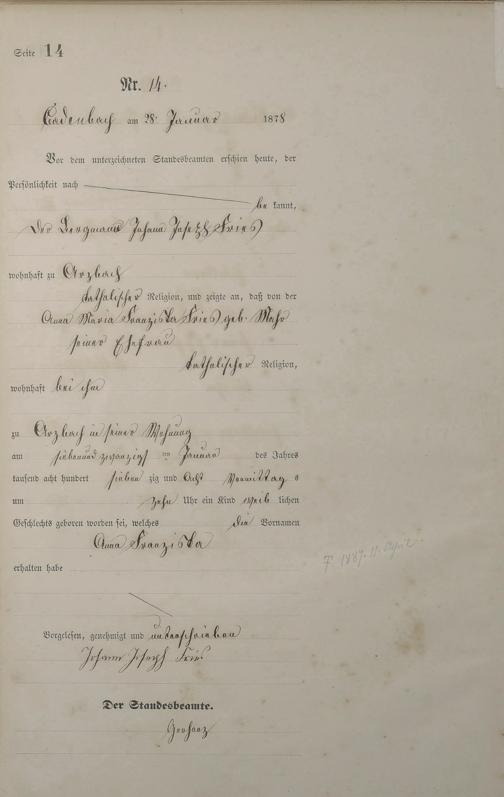 Seite 14
Nr. 14.
Cadenbach am 28 Januar 1878
Vor dem unterzeichneten Standesbeamten erschien heute, der
Persönlichkeit nach
be kannt,
Der Bergmann Johann Joseph Fries
wohnhaft zu Arzbach
katholischer Religion, und zeigte an, daß von der
Anna Maria Franziska Fries geb. Mohr
seiner Ehefrau
katholischer Religion,
wohnhaft bei ihm
zu Arzbach in seiner Wohnung
am siebenundzwanzigst en Januar des Jahres
tausend acht hundert sieben zig und Acht Vormittag s
um zehn Uhr ein Kind weib lichen
Geschlechts geboren worden sei, welches die Vornamen
Anna Franziska
erhalten habe
† 1887. 11. April
Vorgelesen, genehmigt und unterschrieben
Johann Joseph Fries
Der Standesbeamte.